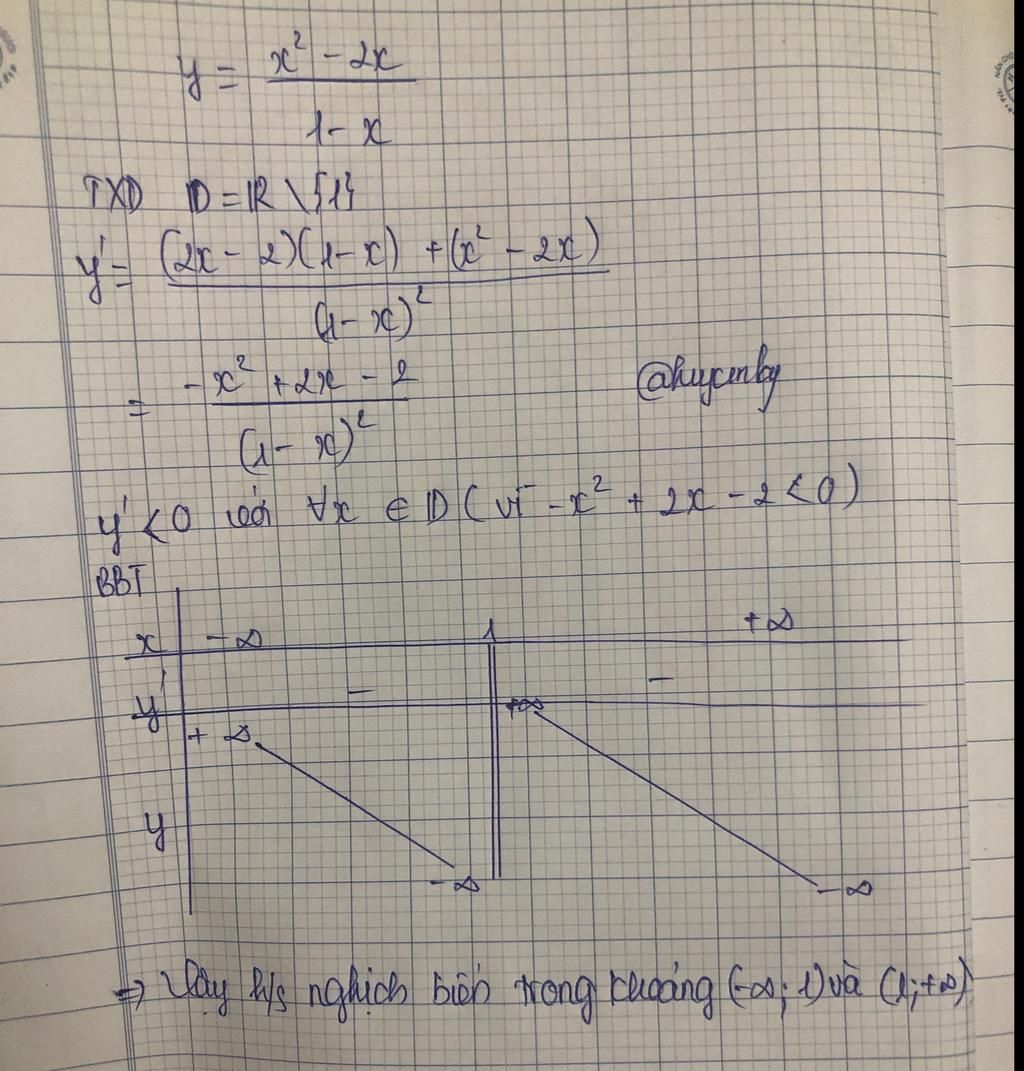 y = (x² - 2x) / (1 - x)
TXD D = ℝ \ {1}
y' = ((2x - 2)(1 - x) + (x² - 2x)) / (1 - x)²
= (-x² + 2x - 2) / (1 - x)²
@huycmby
y' < 0 với ∀x ∈ D (vì -x² + 2x - 2 < 0)
BBT
x -∞ 1 +∞
y' - -
y +∞ -∞ +∞ -∞
⇒ Vậy h/s nghịch biến trong khoảng (-∞; 1) và (1; +∞)